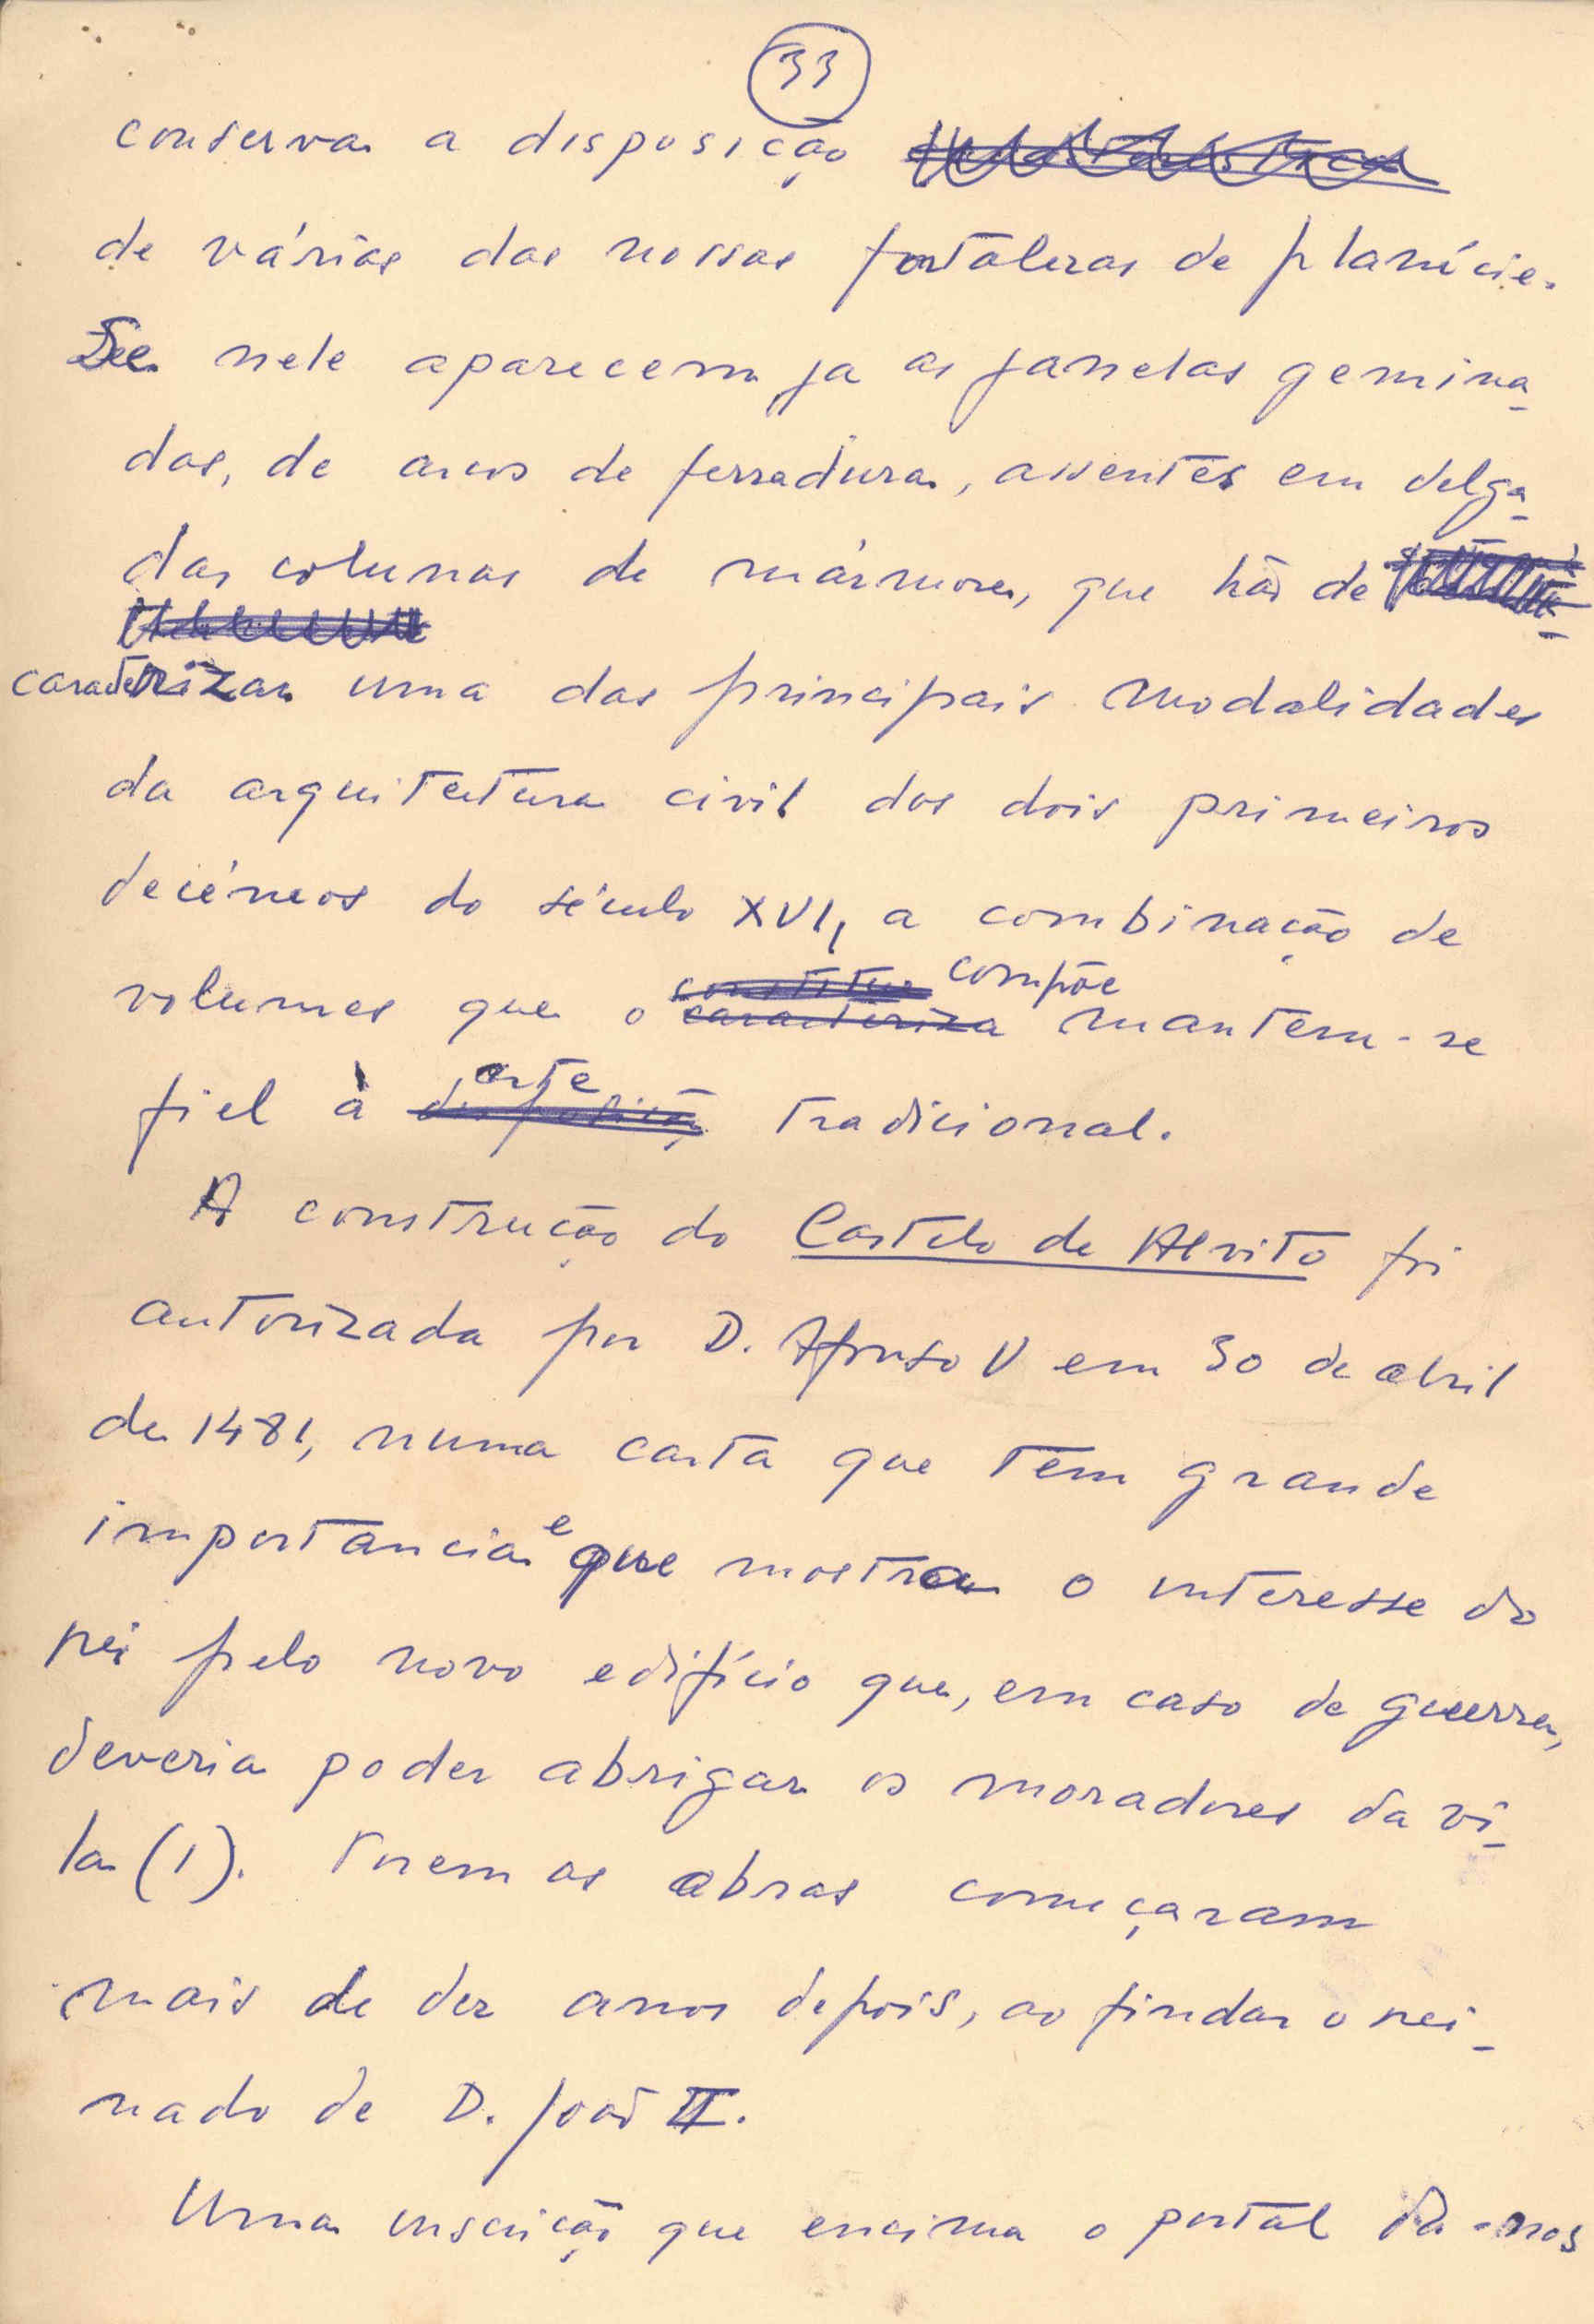 33
conserva a disposição
de várias das nossas fortalezas de planície.
Se nele aparecem ja as janelas gemina-
das, de arcos de ferradura, assentes em delga-
das colunas de mármore, que hão de
caracterizar uma das principais modalidades
da arquitectura civil dos dois primeiros
decéneos do século XVI, a combinação de
constitue compõe
volumes que o caracteriza mantem-se
arte
fiel à disposição tradicional.
A construção do Castelo de Alvito foi
autorizada por D. Afonso V em 30 de abril
de 1481, numa carta que tem grande
importancia e que mostra o interesse do
rei pelo novo edifício que, em caso de guerra,
deveria poder abrigar os moradores da vi-
la (1). Porem as obras começaram
mais de dez anos depois, ao findar o rei-
nado de D. João II.
Uma inscrição que encima o portal da-nos